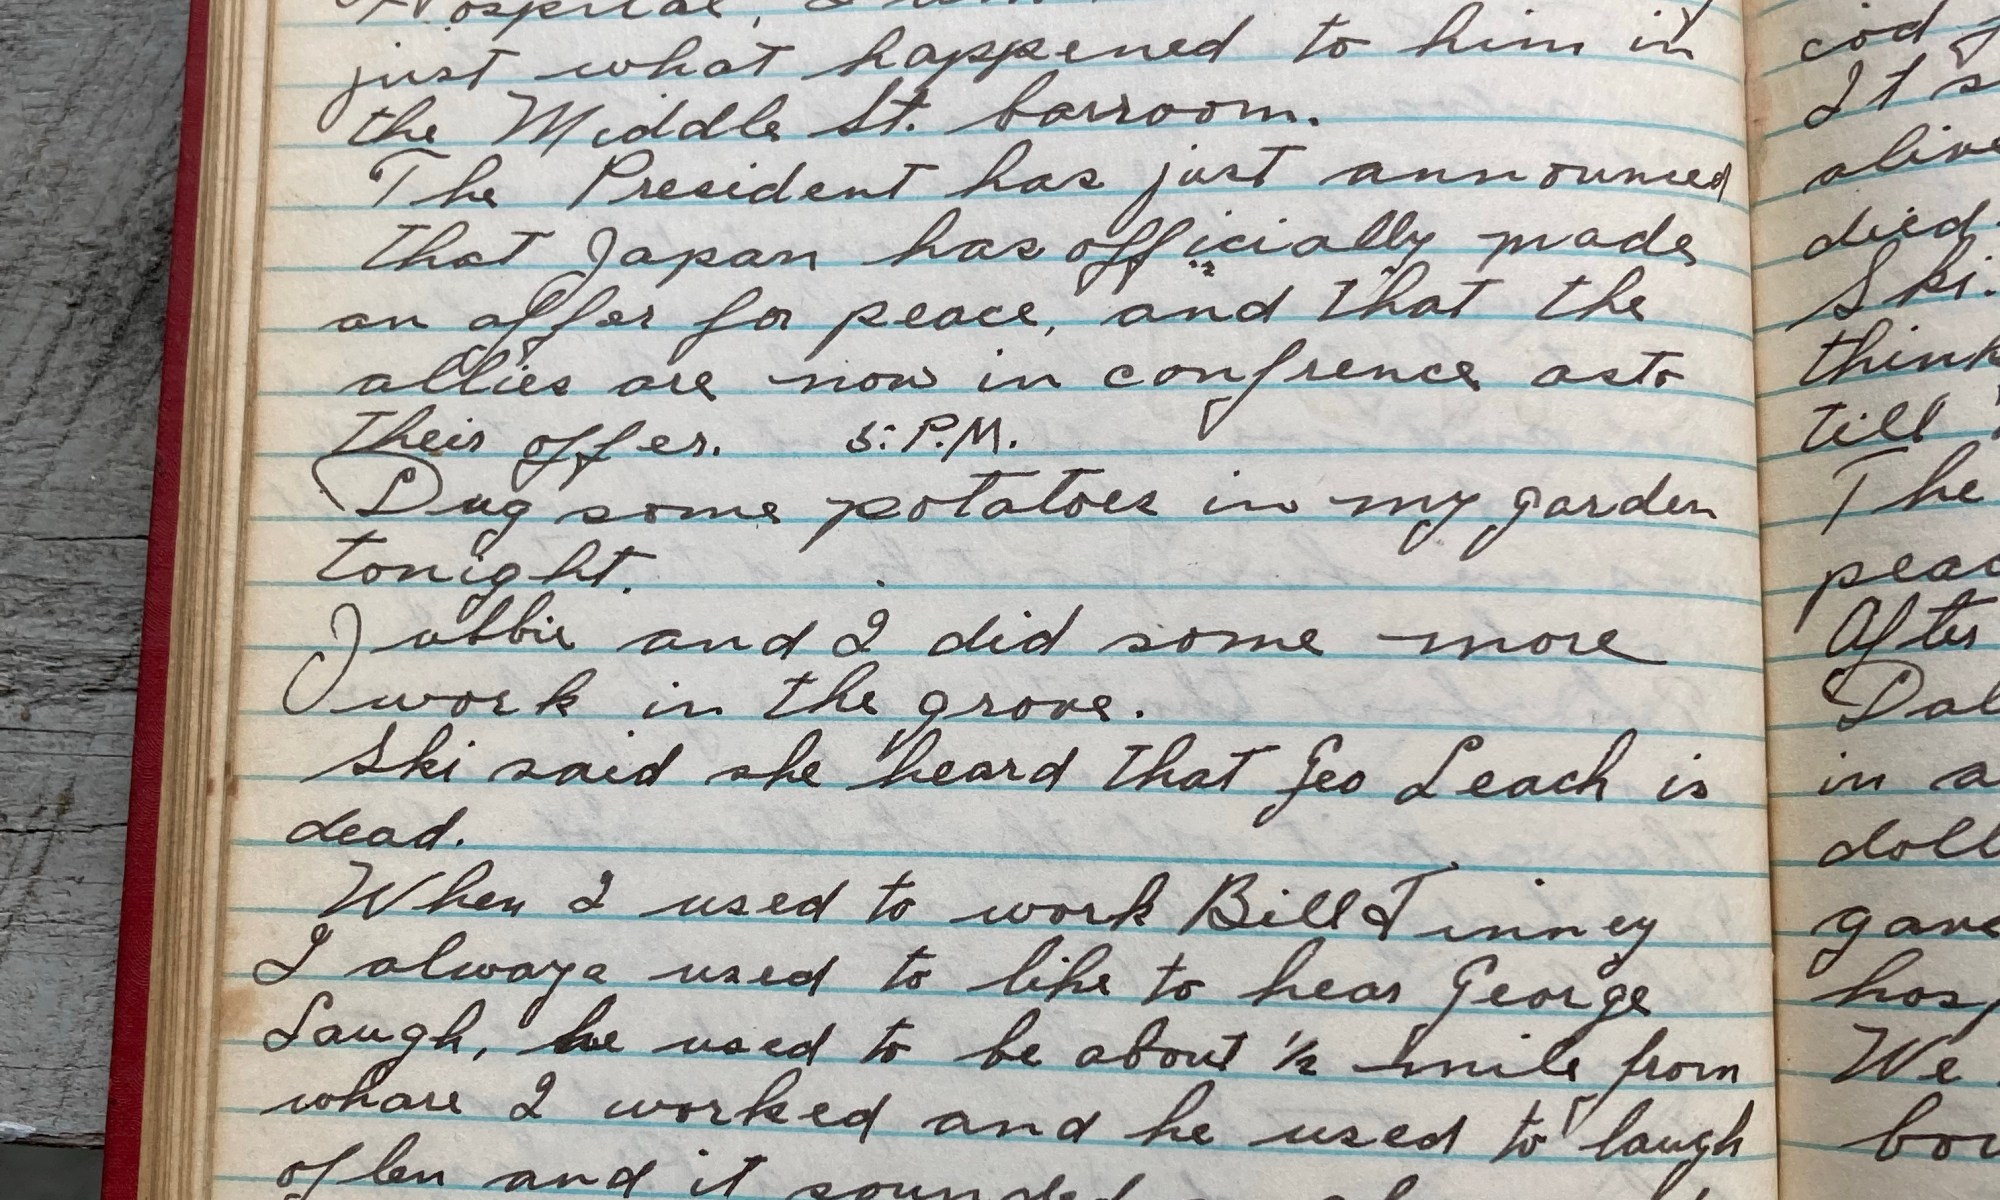 Hospital, I
just what happened to him in
the Middle St. barroom.
The President has just announced
that Japan has officially made
an offer for peace, and that the
allies are now in confrence asto
their offer. 5: P.M.
Dug some potatoes in my garden
tonight.
and I did some more
work in the grove.
Ski said she heard that Geo Leach is
dead.
When I used to work Bill Tinney
I always used to like to hear George
Laugh, he used to be about 1/2 mile from
whare I worked and he used to laugh
often and it sounded
cod
It s
alive
died.
Ski.
think
till
The
peac
After
Dal
in a
doll
gave
hos
We
bou